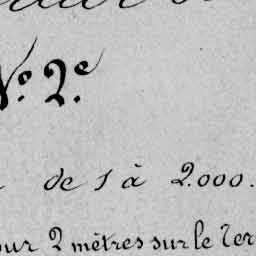 N.° 2.e
de 1 à 2.000.
2 mètres sur le